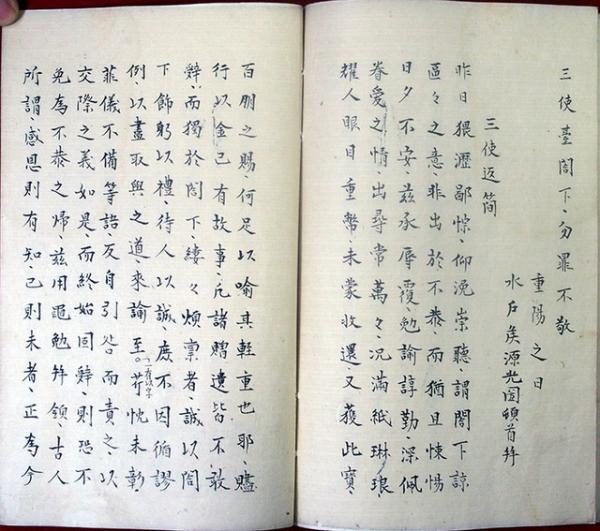 三使臺閤下、勿罪不敬
重陽之日
水戶侯源光圀頓首拜
三使返簡
昨日猥瀝鄙悰、仰浼崇聽、謂閤下諒
區々之意、非出於不恭、而猶且悚惕
日夕不安、茲承辱覆、勉諭諄勤、深佩
眷愛之情、出尋常萬々、況滿紙琳琅
耀人眼目、重幣、未蒙收還、又獲此寶、
百朋之賜、何足以喻其輕重也耶、贐
行以金、已有故事、凡諸贈遺皆不敢
辭、而獨於閤下、縷々煩稟者、誠以閤
下飭躬以禮、待人以誠、庶不因循謬
例、以盡取與之道、來諭至。荐忱未彰
一有以字
菲儀不備等語、反自引咎而責之、以
交際之義如是、而終始固辭、則恐不
免為不恭之歸、茲用黽勉拜領、古人
所謂、感恩則有知、己則未者、正為今